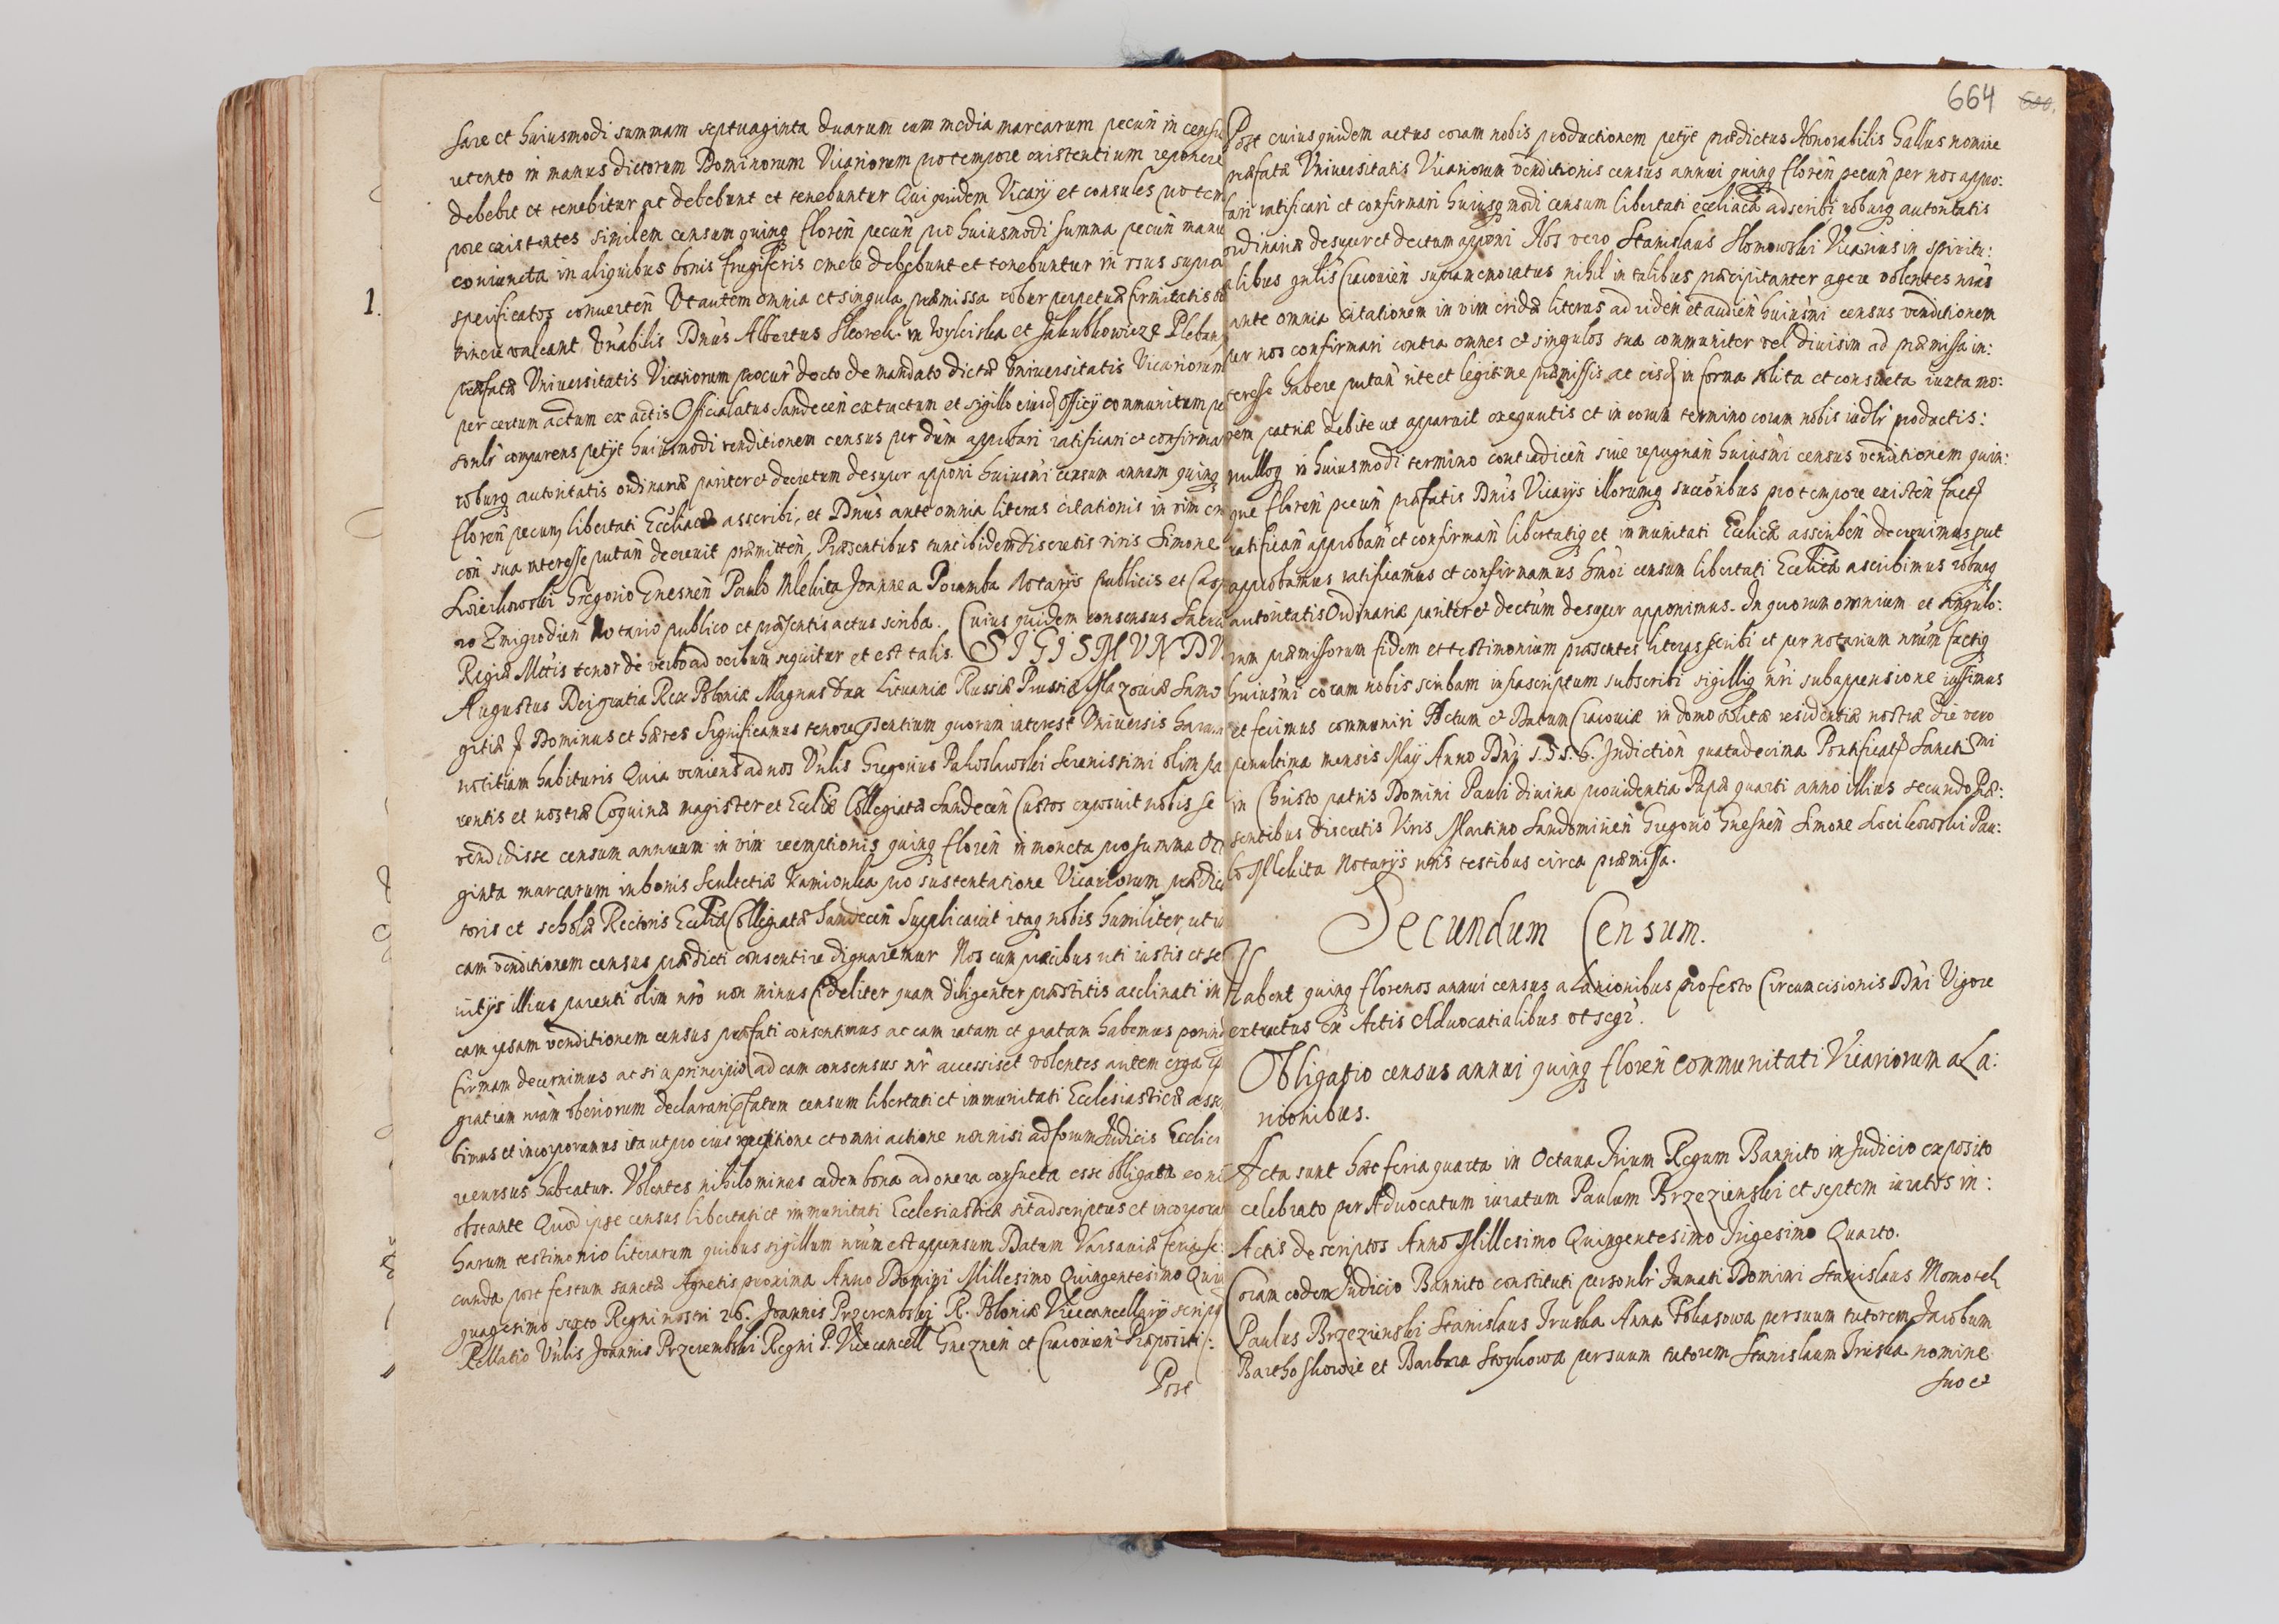 sare et huiusmodi summam septuaginta duarum cum media marcarum pecun̄ in censu
retento in manus dictorum Dominorum Vicariorum pro tempore existentium reponere
debebit et tenebitur ac debebunt et tenebuntur Qui quidem Vicarij et consules pro tem
pore existentes similem censum quinq floren̄ pecun̄ pro huiusmodi summa pecun̄ manu
coniuncta in aliquibus bonis frugiferis emere debebunt et tenebuntur in usus supra
1.
specificatos conuerten̄ Ut autem omnia et singula præmissa robur perpetuæ firmitatis
uincere valeant Vn̄abilis Dnūs Albertus in et Jakubkowicze Pleban
præfatæ Vniuersitatis Vicariorum procur̄ docto de mandato dictæ Vniuersitatis Vicariorum
per certum actum ex actis Officialatus Sandecen̄ extractum et sigillo eiusd Officij communitum
sonlr̄ comparens petijt huiusmodi venditionem census per dūm approbari ratificari et confirma
roburq autoritatis ordinariæ pariter et decretum desuper apponi huiusm̄i censum annum quinq
floren̄ pecun libertati Eccl̄iacæ asscribi, et Dnūs ante omnia literas citationis in vim
con̄ sua interesse putan̄ decreuit præmitten̄ Præsentibus tunc ibidem discretis viris Simone
Gregorio Gnesnen̄ Paulo Mlekita Joanne a Poramba Notarijs publicis et Casp
ro Zmigrodien̄ Notario publico et præsentis actus scriba. Cuius quidem consensus Sacra
Regiæ Mt̄tis tenor de verbo ad verbum sequitur et est talis. SIGISMVNDV
Augustus Dei gratia Rex Poloniæ Magnus Dux Lituaniæ Russiæ Prussiæ Mazouiæ Samo
gitiæ Dominus et hæres Significamus tenore pr̄sentium quorum interest Vniuersis harum
notitiam habituris Quia veniens ad nos Vn̄lis Gregorius Pahoslawski Serenissimi olim Pa
rentis et nostræ Coquinæ magister et Eccl̄iæ Collegiatæ Sandecen̄ Custos exposuit nobis se
vendidisse censum annuum in vim reemptionis quinq floren̄ in moneta pro summa
ginta marcarum in bonis Scultetiæ Kamionka pro sustentatione Vicariorum prædic
toris et scholæ Rectoris Eccl̄iæ Collegiatæ Sandecen̄ Supplicauit itaq nobis humiliter, ut
eam venditionem census prædicti consentire dignaremur Nos eum præcibus uti iustis et
uitijs illius parenti olim nr̄o non minus fideliter quam diligenter præstitis acclinati in
eam ipsam venditionem census præfati consentimus ac eam ratam et gratam habemus
firmam decernimus ac si a principio ad eam consensus nr̄ accessiset volentes autem erga
gratiam nr̄am uberiorum declarari pr̄fatum censum libertati et immunitati Ecclesiasticæ
bimus et incorporamus ita ut pro eius repetitione et omni actione non nisi ad forum Judicis Eccl̄ici
recursus habeatur. Volentes nihilominus eadem bona ad onera consueta esse obligata
obstante Quod ipse census libertati et immunitati Ecclesiasticæ sit adscriptus et incorpora
harum testimonio literarum quibus sigillum nr̄um est appensum Datum Varsauiæ feria se:
cunda post festum sanctæ Agnetis proxima Anno Domini Millesimo Quingentesimo Quin
quagesimo sexto Regni nostri 26. Joannis Przerembskij R. Poloniæ Vicecancellarij
Rellatio Vn̄lis Joannis Przerembski Regni P. Vicecancell Gneznen̄ et Cracouien̄ Præpositi:
Post
664 600.
Post cuius quidem actus coram nobis productionem petijt prædictus Honorabilis Gallus nomine
præfatæ Vniuersitatis Vicariorum venditionis census annui quinq floren̄ pecun̄ per nos appro:
bari ratificari et confirmari huiusq modi censum libertati eccliacæ adscribi roburq autoritatis
ordinariæ desuper et decretum apponi Nos vero Stanislaus Slomowski Vicarius in spiritu:
alibus gn̄lis Cracouien̄ supramemoratus nihil in talibus præcipitanter agere volentes nr̄as
ante omnia citationem in vim cridæ literas ad viden̄ et audien̄ huiusm̄i census venditionem
per nos confirmari contra omnes et singulos sua communiter vel diuisim ad præmissa in:
teresse habere putan̄ rite et legitime præmissis ac eisd in forma solita et consueta iuxta mo:
rem patriæ debite ut apparuit exequutis et in eorum termino coram nobis iudlr̄ productis:
nulloq in huiusmodi termino contradicen̄ siue repugnan̄ huiusm̄i census venditionem quin:
que floren̄ pecun̄ præfatis Dnīs Vicarijs illorumq succōribus pro tempore existen̄ fact
ratifican̄ approban̄ et confirman̄ libertatiq et immunitati Eccl̄icæ asscriben̄ decreuimus put
approbamus ratificamus et confirmamus hm̄oi censum libertati Eccl̄icæ ascribimus roburq
autoritatis Ordinariæ pariter et decr̄tum desuper apponimus. In quorum omnium et singulo:
rum præmissorum fidem et testimonium præsentes literas scribi et per notarium nr̄um factiq
huiusm̄i coram nobis scribam infrascriptum subscribi sigilliq nr̄i subappensione iussimus
et fecimus communiri Actum et Datum Cracouiæ in domo solitæ residentiæ nostræ Die vero
penultima mensis Maij Anno Dn̄i 1556. Indiction̄ quatadecima Pontificat Sanct mi
in Christo patris Domini Pauli diuina prouidentia Papæ quarti anno illius secundo Præ:
sentibus discretis Viris Martino Sandomirien̄ Gregorio Gnesnen̄ Simone Pau:
lo Mlekita Notarijs nr̄is testibus circa præmissa.
Secundum Censum.
Habent quinq florenos annui census a Lanionibus pro festo Circumcisionis Dn̄i Vigore
extractus Ex Actis Aduocatialibus ut seqr̄.
Obligatio census annui quinq floren̄ communitati Vicariorum a La:
nionibus.
Acta sunt hæc feria quarta in Octaua Trium Regum Bannito in Judicio exposito
celebrato per Aduocatum iuratum Paulum Brzezienski et septem iuratos in:
Actis descriptos Anno Millesimo Quingentesimo Trigesimo Quarto.
Coram eodem Judicio Bannito constituti personlr̄ Famati Domini Stanislaus Momotek
Paulus Brzezienski Stanislaus Truska Anna Tobiasowa per suum tutorem Jacobum
Barthoskowie et Barbara per suum tutorem Stanislaum Truska nomine
suo et